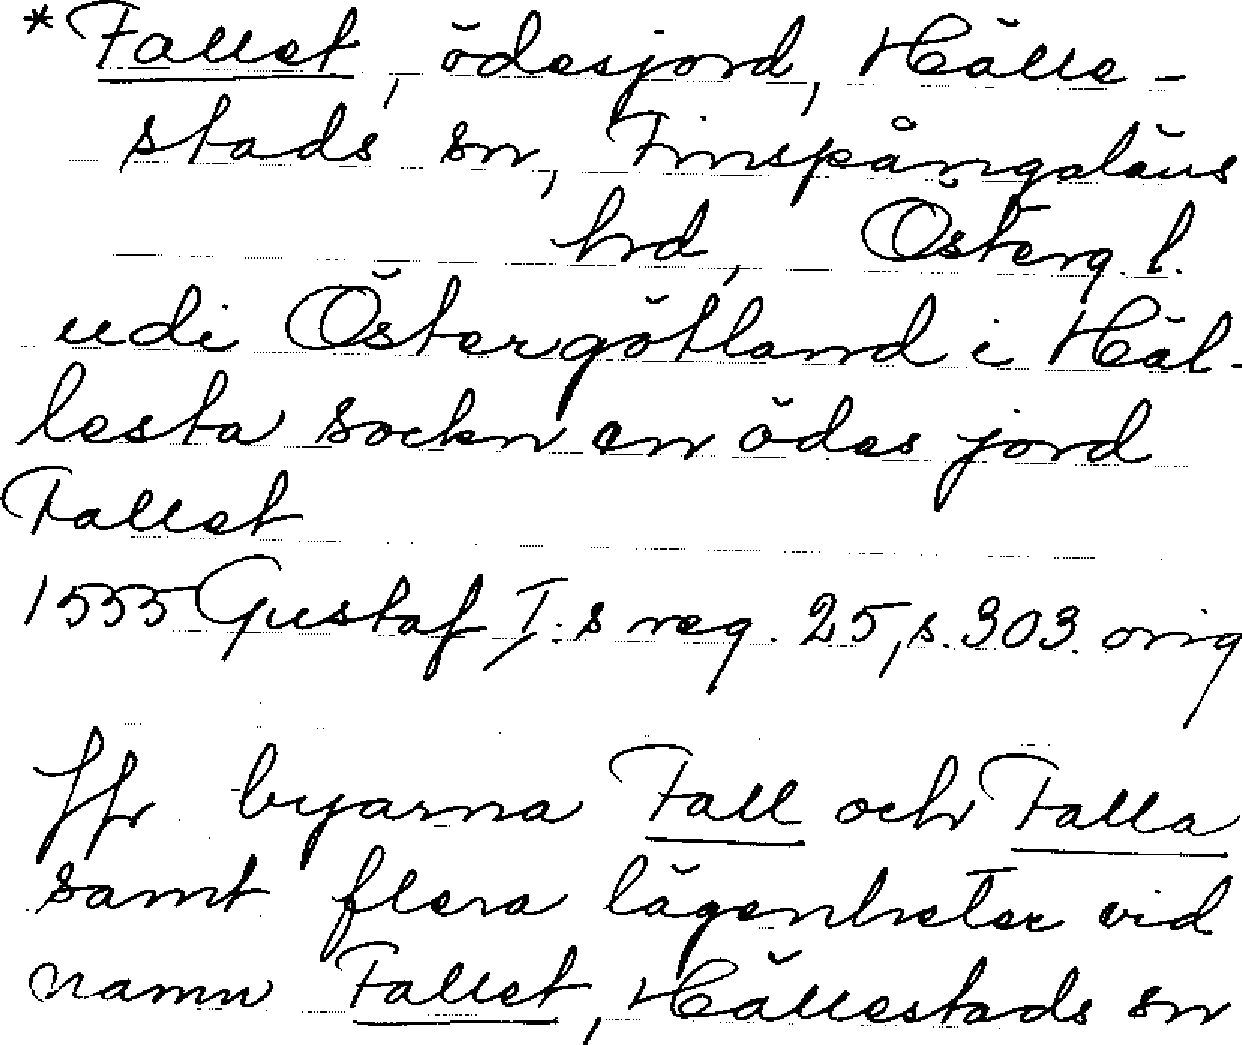 *Fallet, ödesjord, Hälle-
stads sn, Finspångaläns
hrd, Österg. l.
udi Östergötland i Häl-
lesta sockn en ödes jord
Fallet
1555 Gustaf I:s reg. 25, s. 303. orig
Jfr byarna Fall och Falla
samt flera lägenheter vid
namn Fallet, Hällestads sn